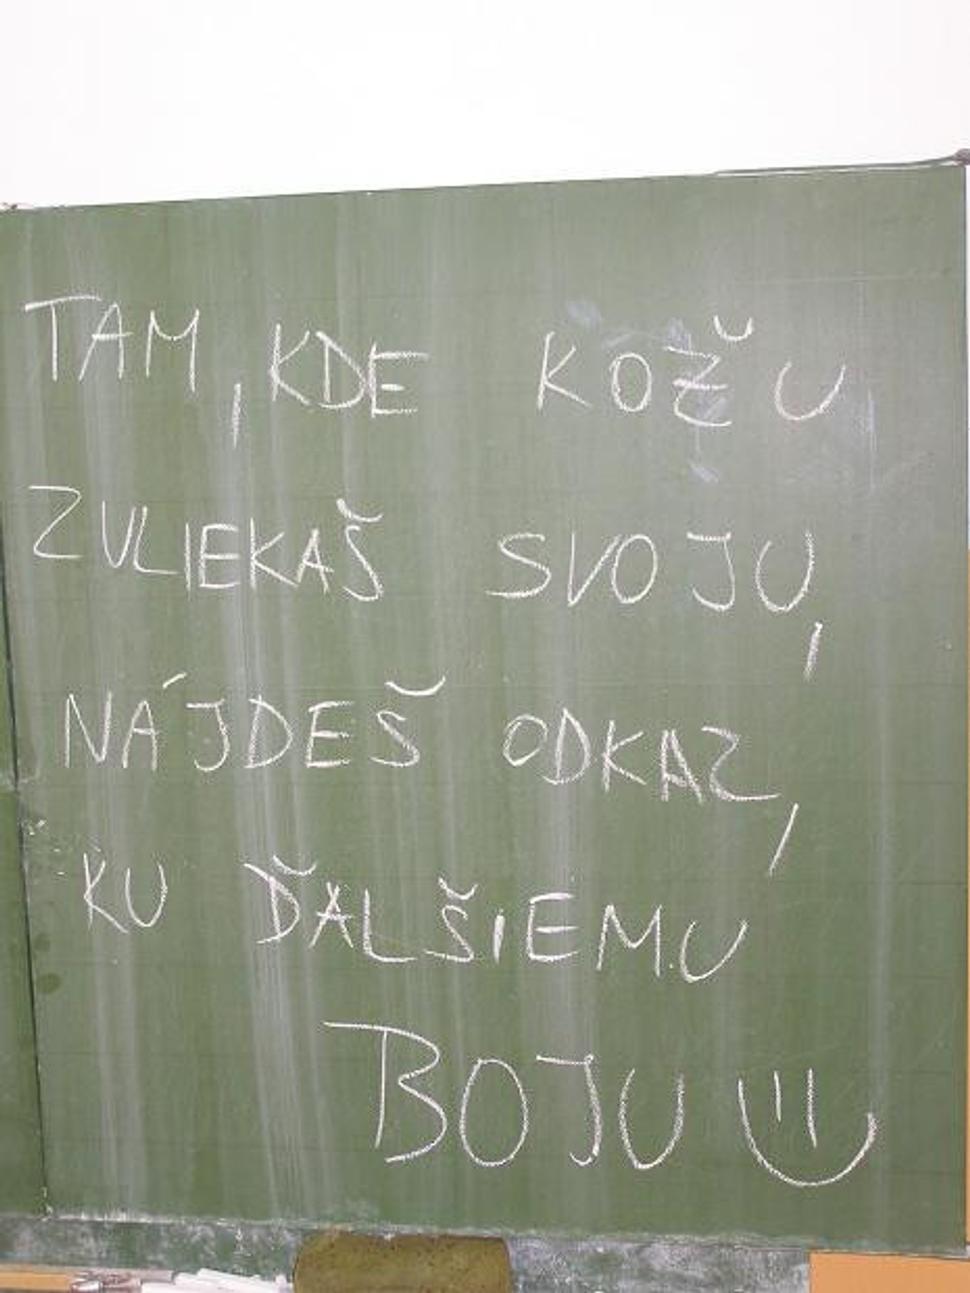 TAM, KDE KOŽU
ZVLIEKAŠ SVOJU,
NÁJDEŠ ODKAZ,
KU ĎALŠIEMU
BOJU